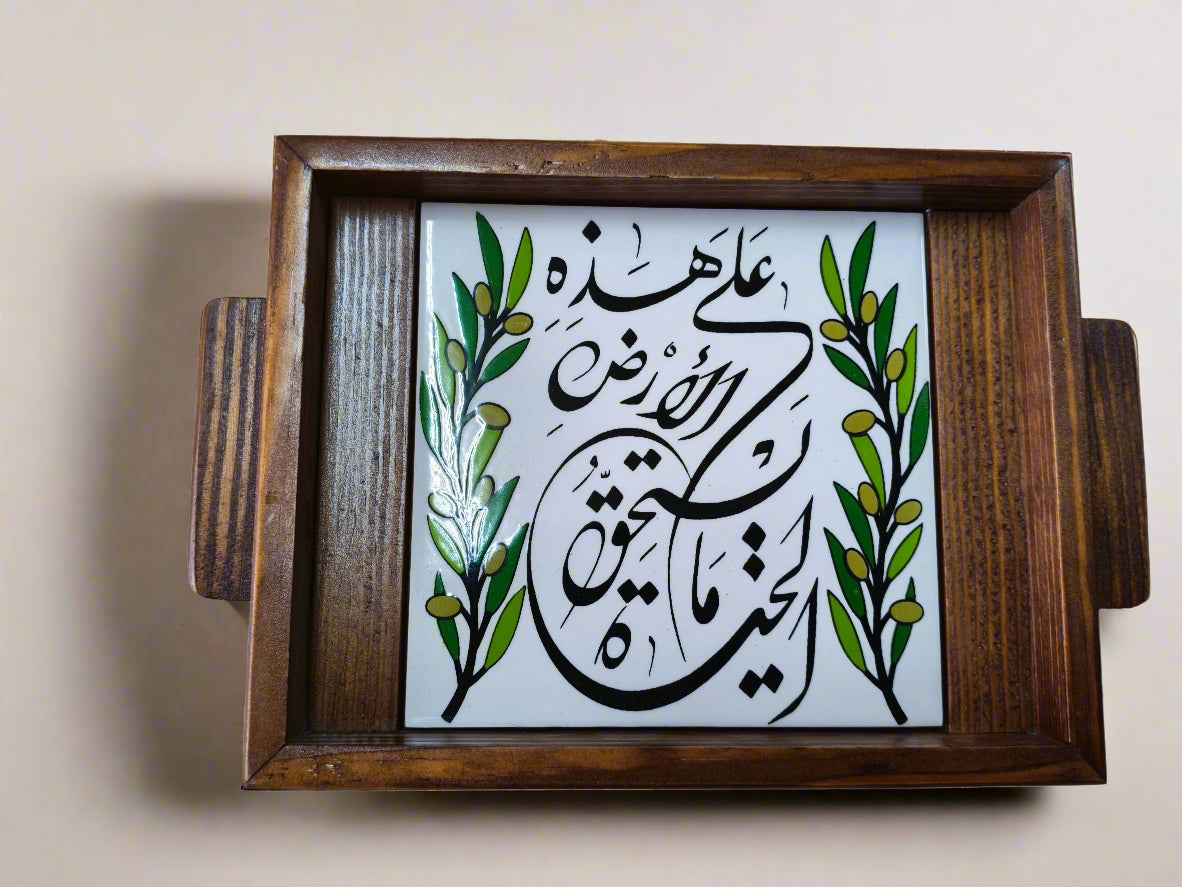 عَلَى هَذِهِ
الأَرْضِ
مَا يَسْتَحِقُّ
الحَيَاةَ